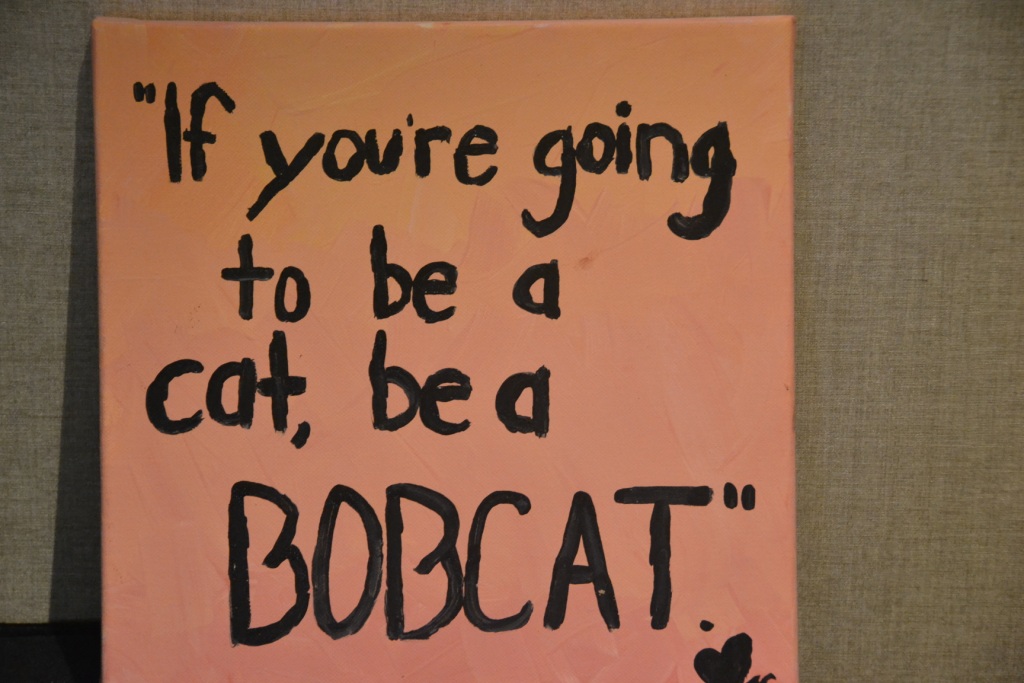 "If you're going
to be a
cat, be a
BOBCAT."